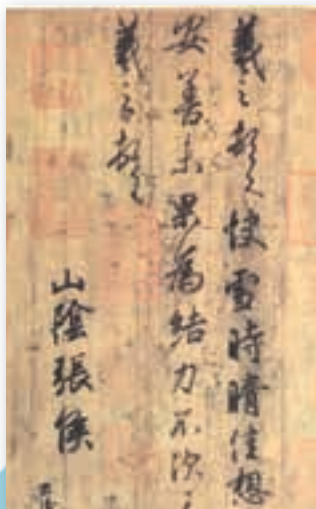 羲之頓首快雪時晴佳想
安善未果為結力不次
羲之頓首
山陰張侯